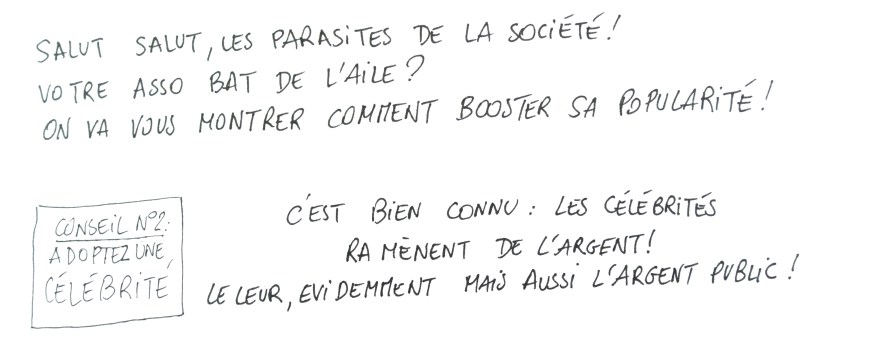 SALUT SALUT, LES PARASITES DE LA SOCIÉTÉ!
VOTRE ASSO BAT DE L'AILE?
ON VA VOUS MONTRER COMMENT BOOSTER SA POPULARITÉ!
CONSEIL N°2:
ADOPTEZ UNE
CÉLÉBRITÉ
C'EST BIEN CONNU: LES CÉLÉBRITÉS
RAMÈNENT DE L'ARGENT!
LE LEUR, EVIDEMMENT MAIS AUSSI L'ARGENT PUBLIC!